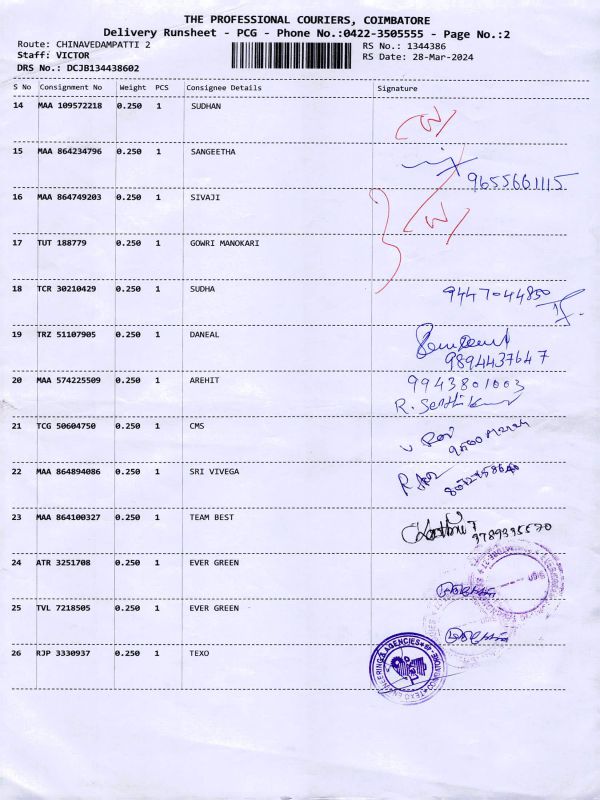 THE PROFESSIONAL COURIERS, COIMBATORE
Delivery Runsheet - PCG - Phone No.:0422-3505555 - Page No.:2
Route: CHINAVEDAMPATTI 2
RS No.: 1344386
Staff: VICTOR
RS Date: 28-Mar-2024
DRS No.: DCJB134438602
S No Consignment No Weight PCS Consignee Details Signature
14 MAA 109572218 0.250 1 SUDHAN
15 MAA 864234796 0.250 1 SANGEETHA
9655661115
16 MAA 864749203 0.250 1 SIVAJI
17 TUT 188779 0.250 1 GOWRI MANOKARI
18 TCR 30210429 0.250 1 SUDHA 9447044850
19 TRZ 51107905 0.250 1 DANEAL
9894437647
20 MAA 574225509 0.250 1 AREHIT 9943801003
21 TCG 50604750 0.250 1 CMS
22 MAA 864894086 0.250 1 SRI VIVEGA
23 MAA 864100327 0.250 1 TEAM BEST
24 ATR 3251708 0.250 1 EVER GREEN
25 TVL 7218505 0.250 1 EVER GREEN
26 RJP 3330937 0.250 1 TEXO